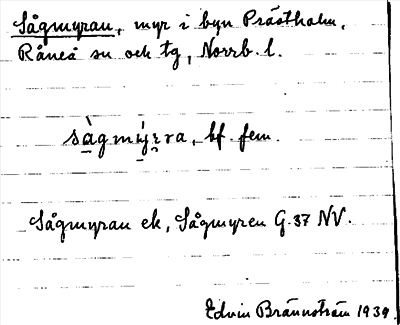 Sågmyran, myr i byn Prästholm,
Råneå sn och tg, Norrb. l.
sàgmýrra, bf. fem.
Sågmyran ek, Sågmyren G. 37 NV.
Edvin Brännström 1939.